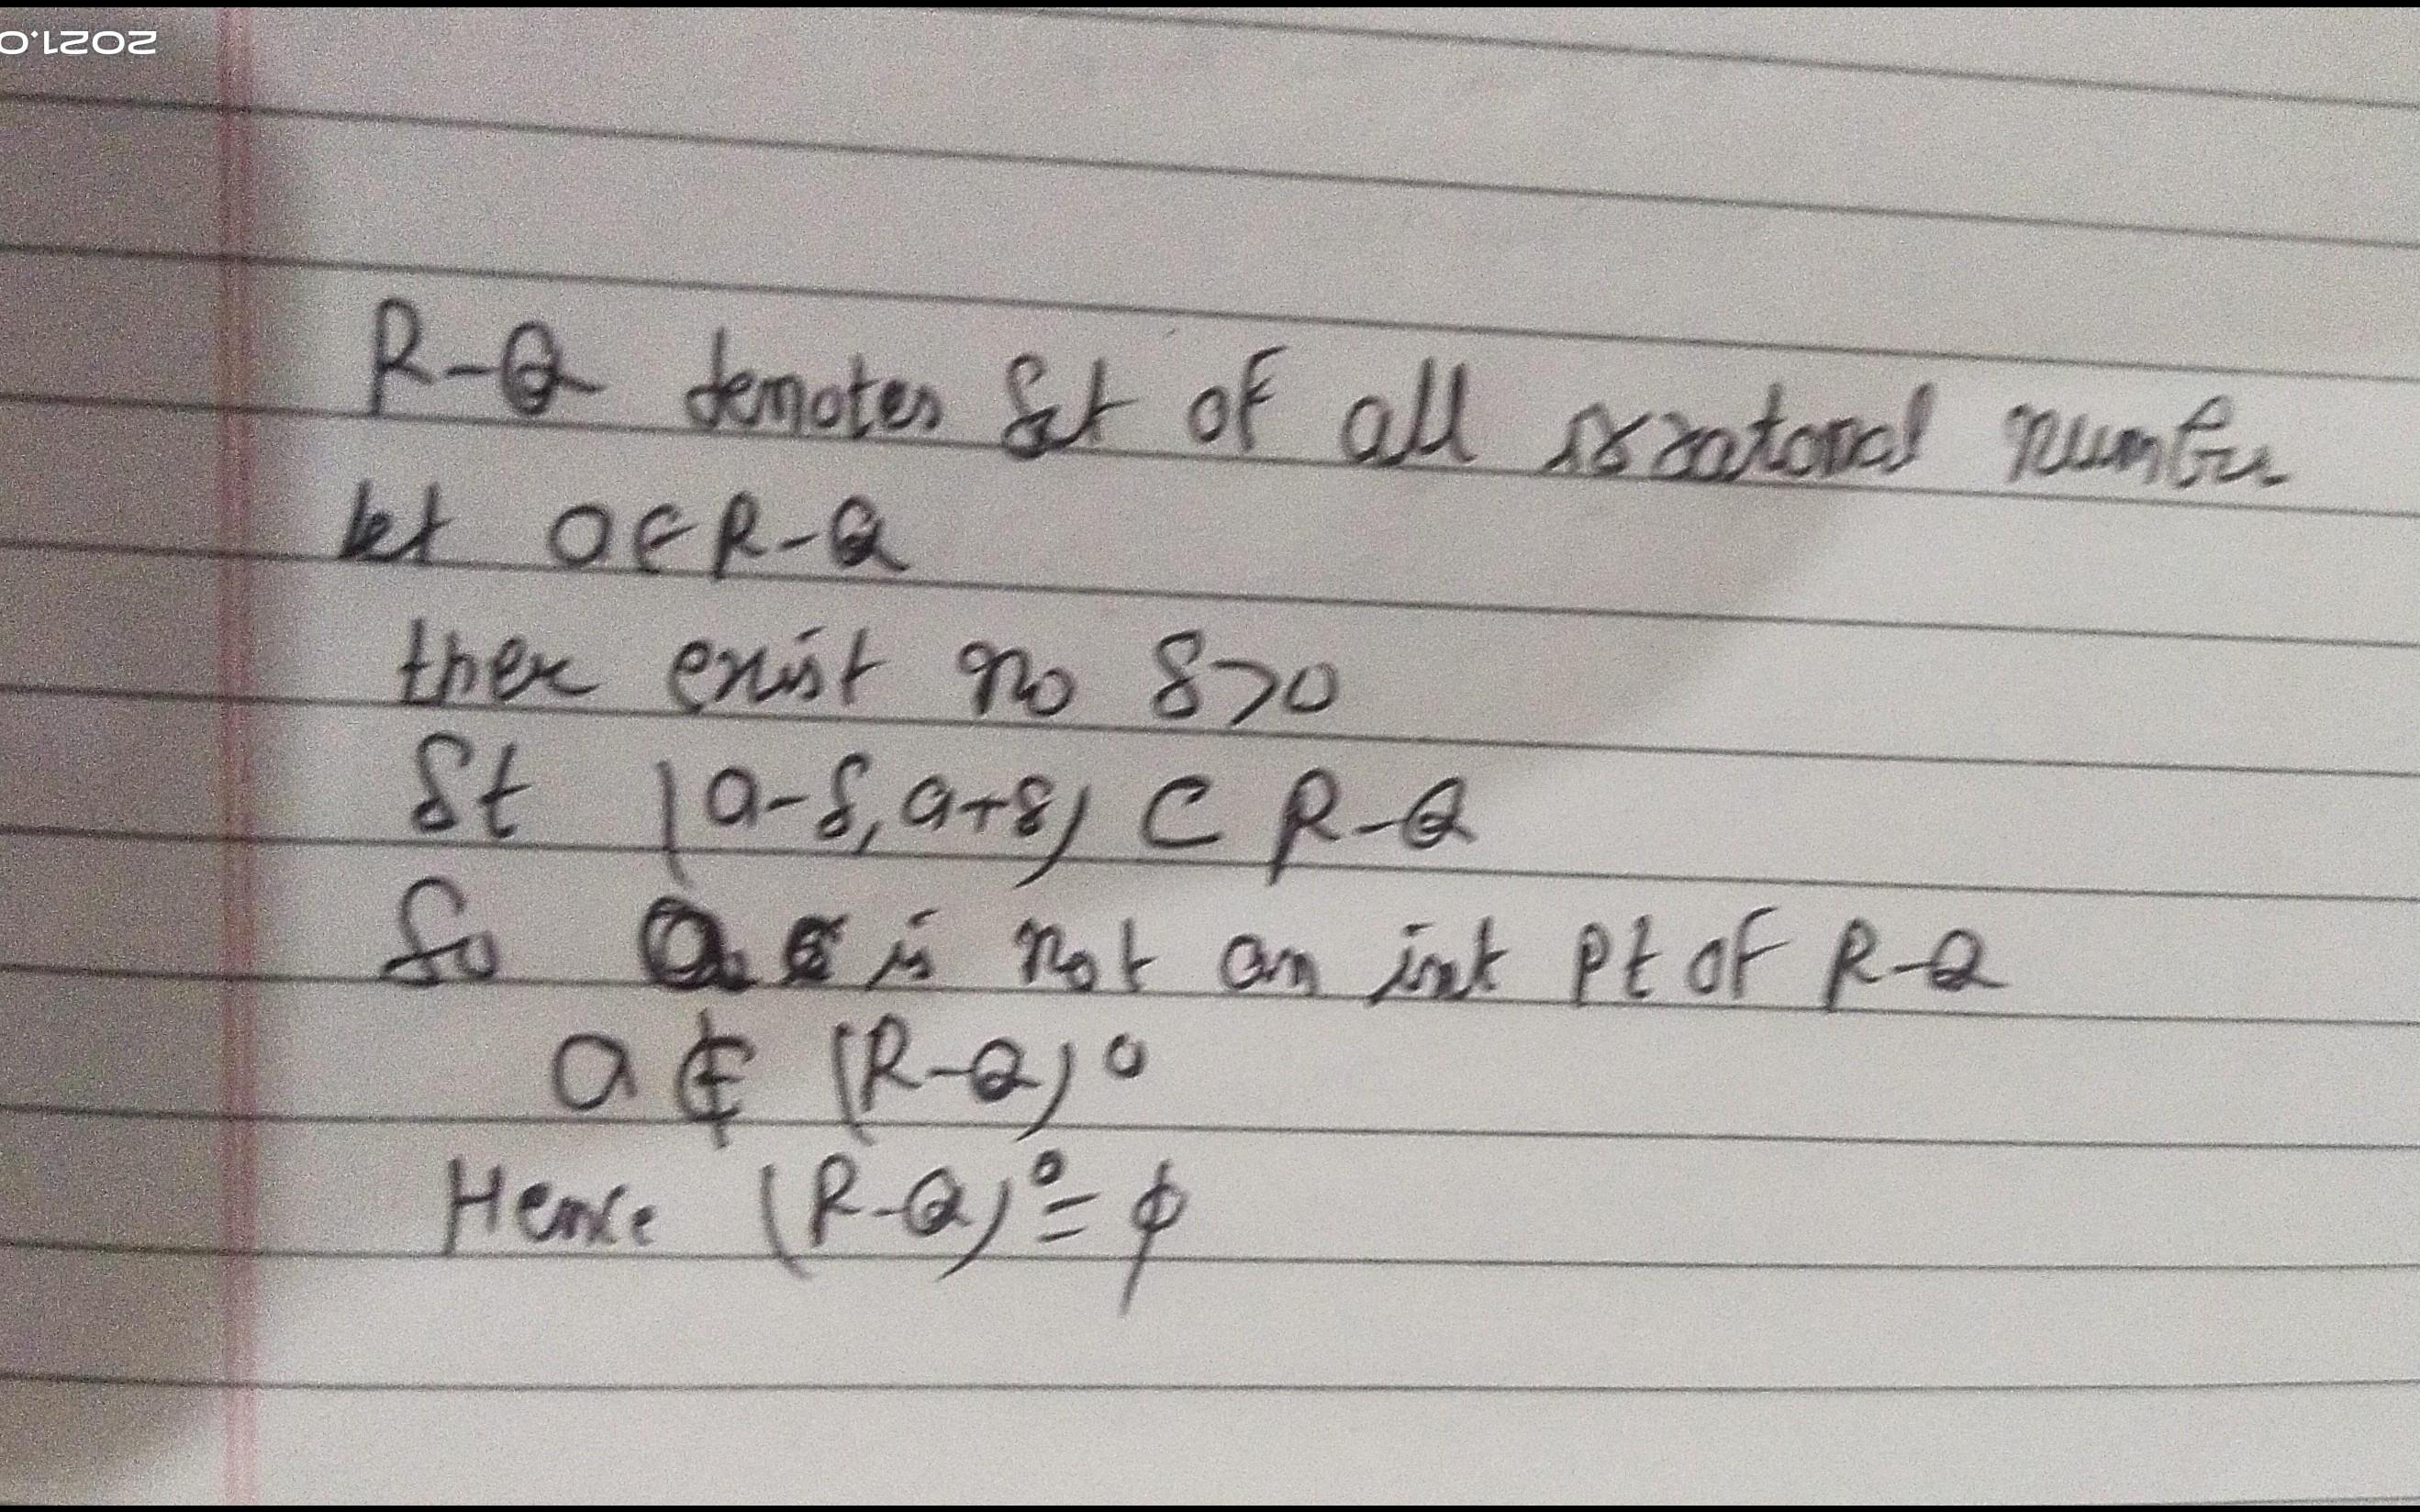 2021.0
R-Q denotes set of all irrational number
let a ∈ R-Q
there exist no δ>0
St (a-δ, a+δ) ⊂ R-Q
So a is not an int pt of R-Q
a ∉ (R-Q)°
Hence (R-Q)° = ϕ